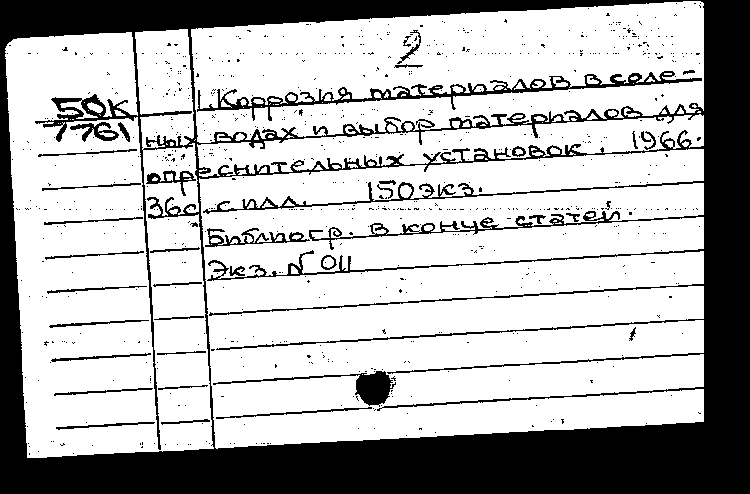 2
50К
7761
1. Коррозия материалов в соле-
ных водах и выбор материалов для
опреснительных установок. 1966.
36с. с илл. 150экз.
Библиогр. в конце статей.
Экз. N 011